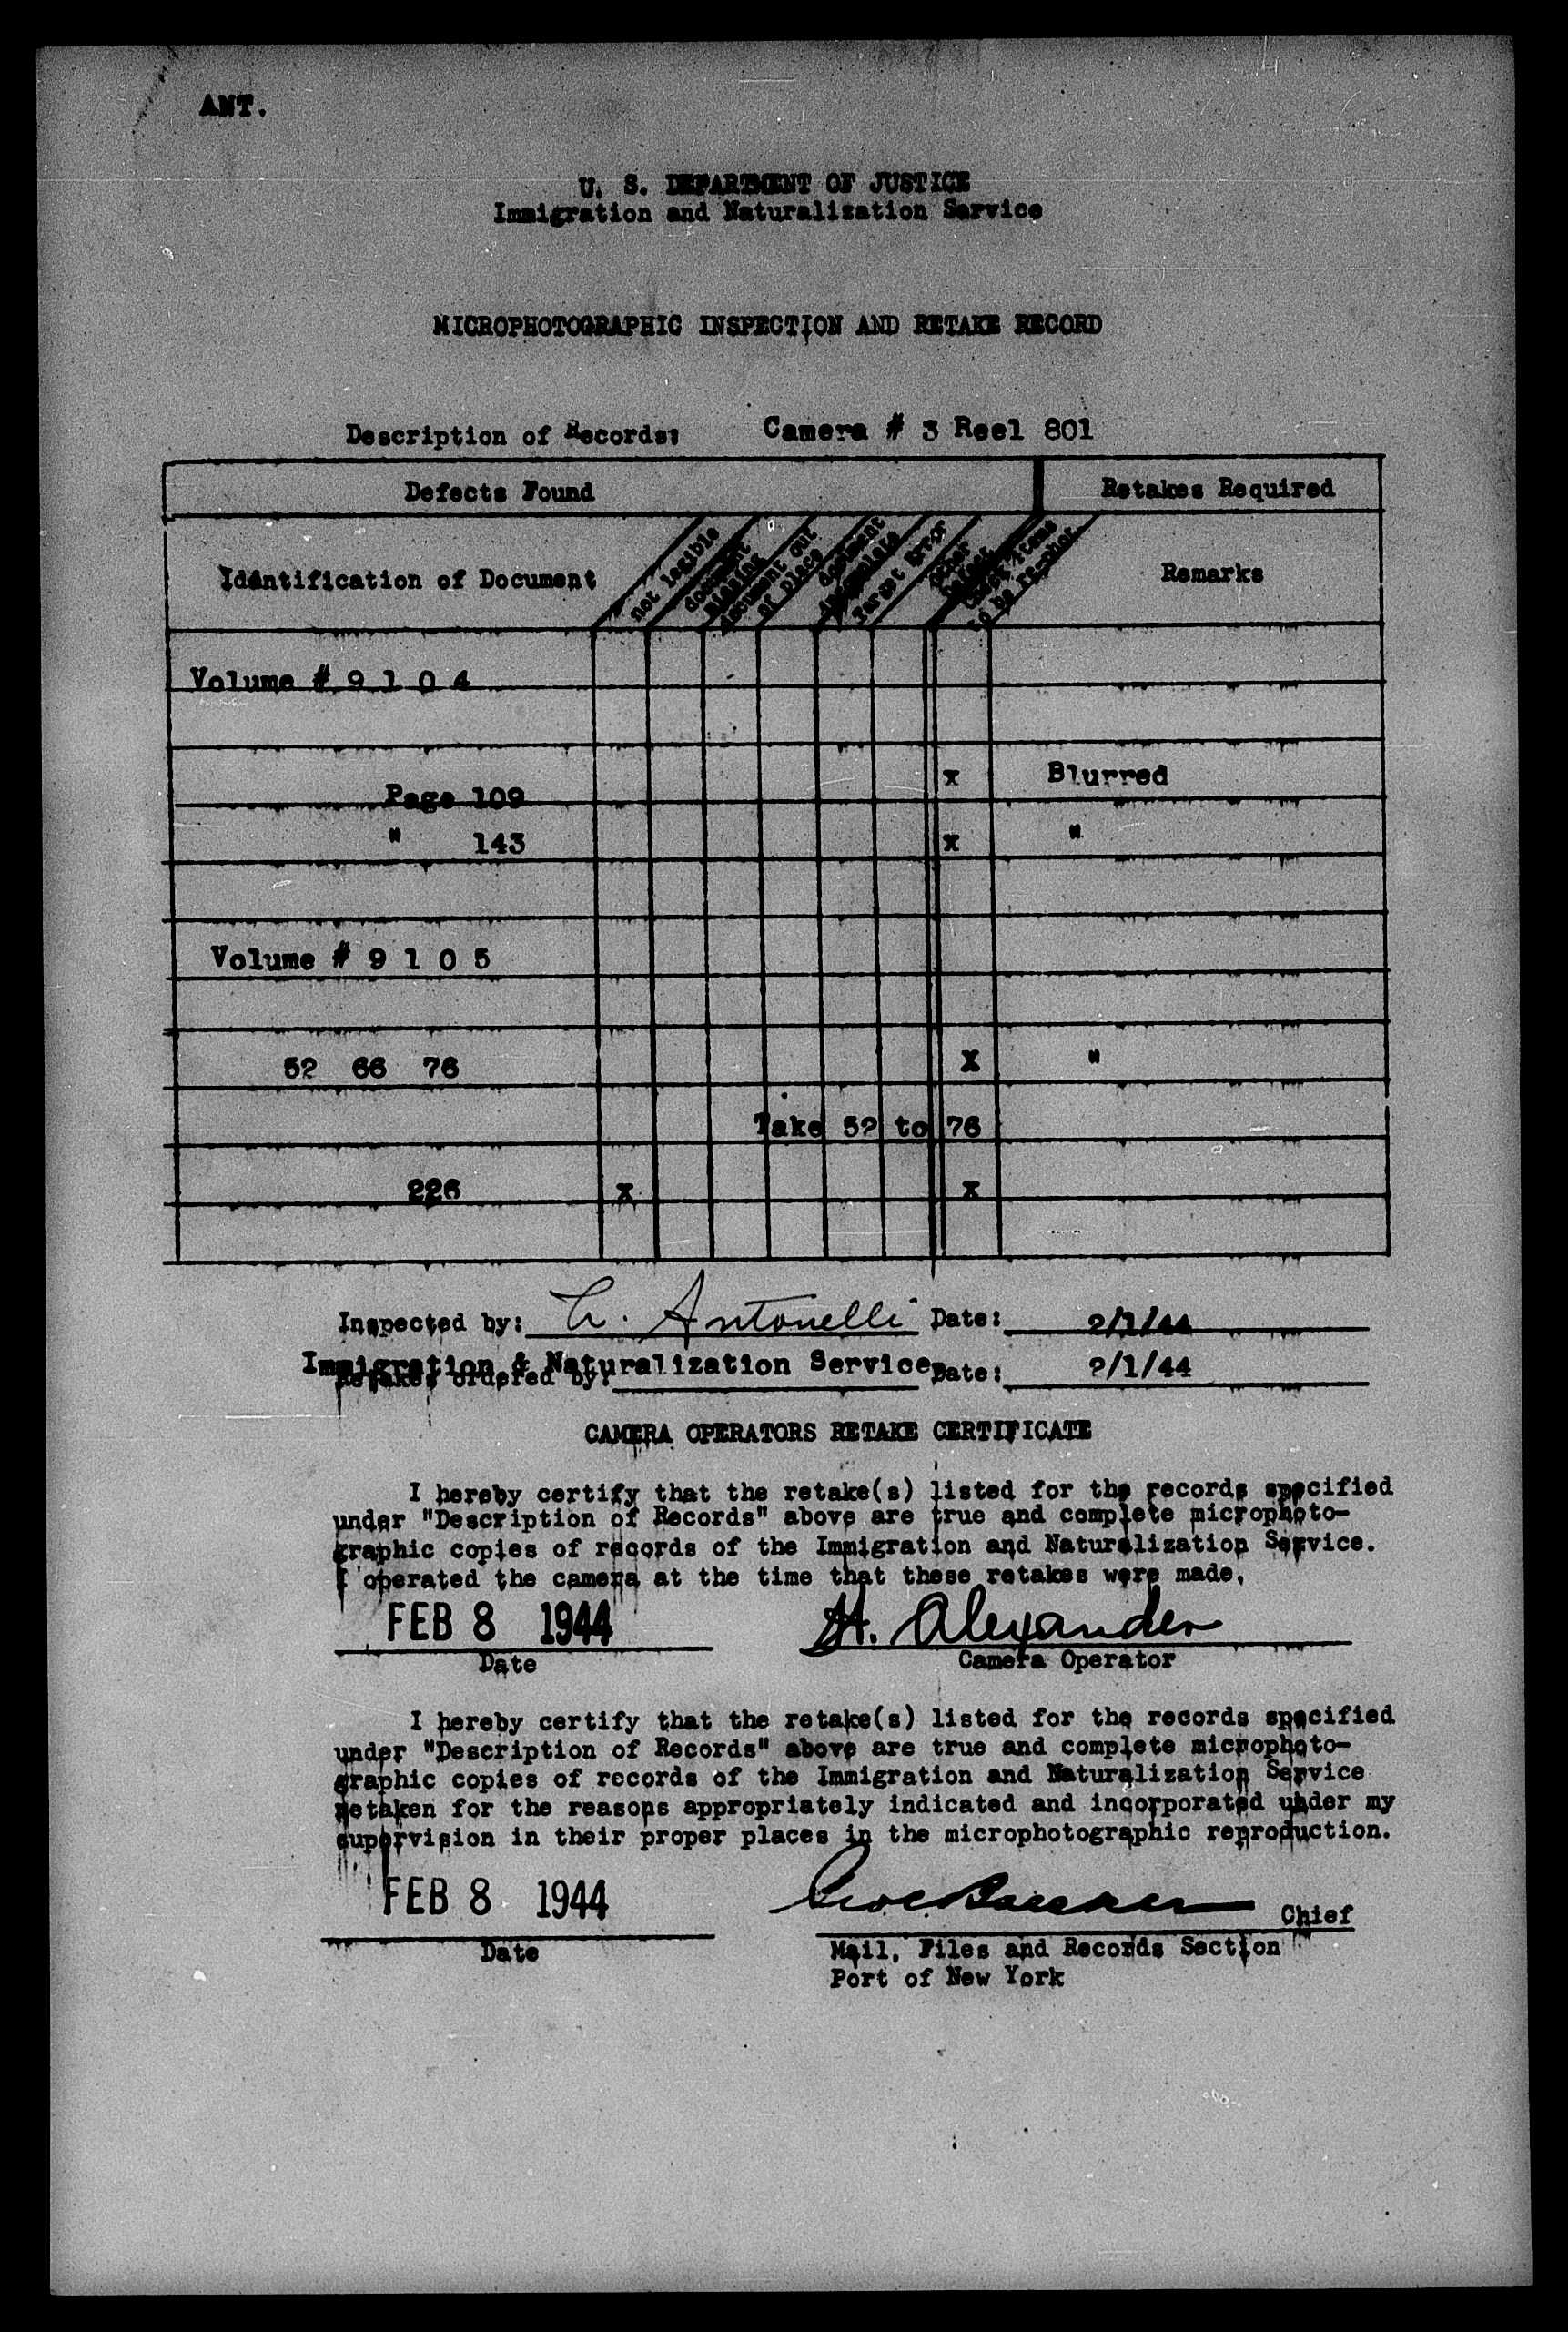 ANT.
U. S. DEPARTMENT OF JUSTICE
Immigration and Naturalization Service
MICROPHOTOGRAPHIC INSPECTION AND RETAKE RECORD
Description of Records: Camera # 3 Reel 801
Defects Found Retakes Required
Identification of Document not legible document missing document out of place document incomplete Target Error other Defect Remarks
Volume # 9 1 0 4
Page 109 x Blurred
" 143 x "
Volume # 9 1 0 5
52 66 76 X "
Take 52 to 76
226 x x
Inspected by: Antonelli Date: 2/1/44
Immigration & Naturalization Service
Retakes ordered by: Date: 2/1/44
CAMERA OPERATORS RETAKE CERTIFICATE
I hereby certify that the retake(s) listed for the records specified
under "Description of Records" above are true and complete microphoto-
graphic copies of records of the Immigration and Naturalization Service.
I operated the camera at the time that these retakes were made.
FEB 8 1944 H. Alexander
Date Camera Operator
I hereby certify that the retake(s) listed for the records specified
under "Description of Records" above are true and complete microphoto-
graphic copies of records of the Immigration and Naturalization Service
retaken for the reasons appropriately indicated and incorporated under my
supervision in their proper places in the microphotographic reproduction.
FEB 8 1944 Chief
Date Mail, Files and Records Section
Port of New York